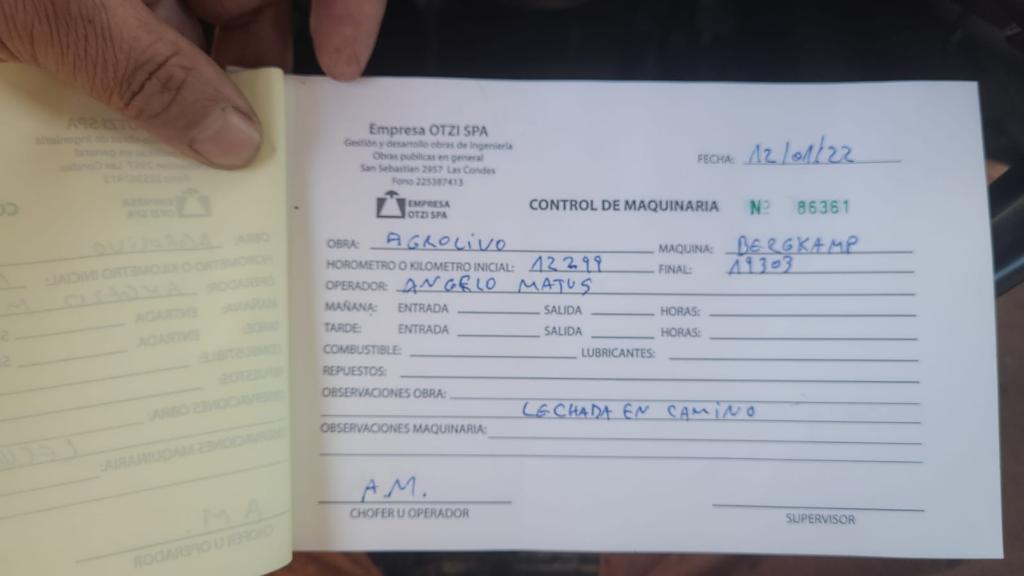 Empresa OTZI SPA
Gestión y desarrollo obras de Ingeniería
Obras publicas en general
San Sebastian 2957 Las Condes
Fono 225387413
EMPRESA
OTZI SPA
FECHA: 12/01/22
CONTROL DE MAQUINARIA Nº 86361
OBRA: AGROLIVO MAQUINA: BERGKAMP
HOROMETRO O KILOMETRO INICIAL: 12299 FINAL: 19303
OPERADOR: ANGELO MATUS
MAÑANA: ENTRADA SALIDA HORAS:
TARDE: ENTRADA SALIDA HORAS:
COMBUSTIBLE: LUBRICANTES:
REPUESTOS:
OBSERVACIONES OBRA:
LECHADA EN CAMINO
OBSERVACIONES MAQUINARIA:
A.M.
CHOFER U OPERADOR
SUPERVISOR